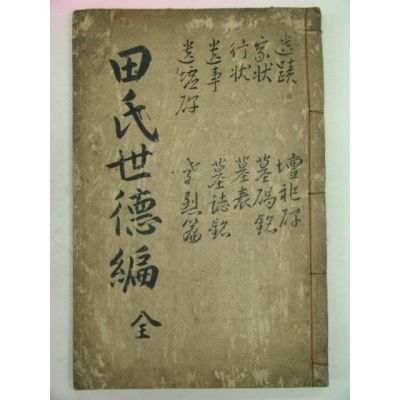 遺蹟 壇祀碑
家状 墓碣銘
行状 墓表
遺事 墓誌銘
遺墟碑 孝烈篇
田氏世德編 全